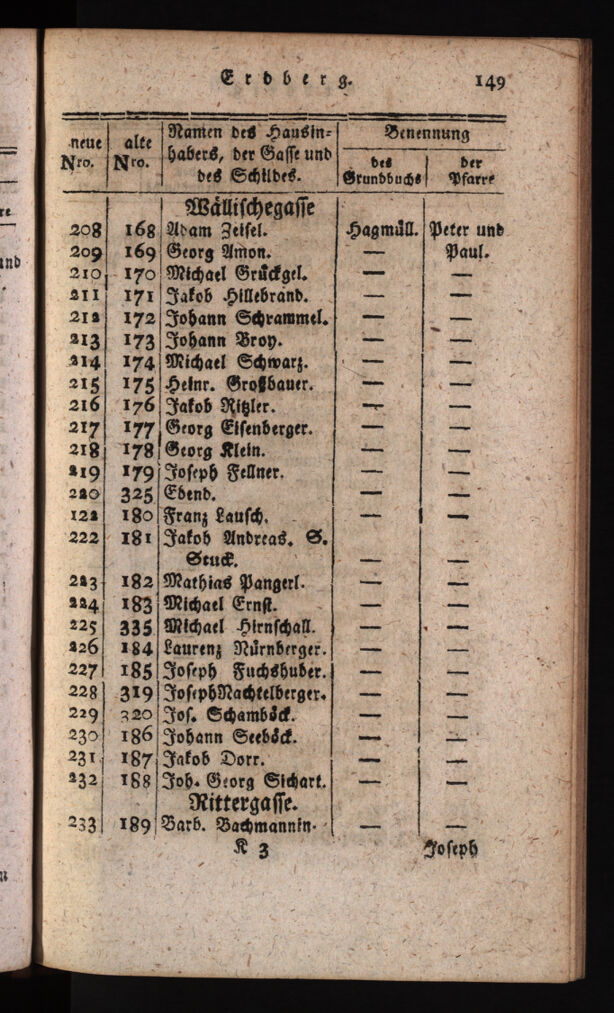 Erdberg. 149
neue Nro. | alte Nro. | Namen des Hausin-habers, der Gasse und des Schildes. | Benennung
des Grundbuchs | der Pfarre
Wällischegasse
208 168 Adam Zeisel. Hagmüll. Peter und
209 169 Georg Amon. — Paul.
210 170 Michael Grückgel. — —
211 171 Jakob Hillebrand. — —
212 172 Johann Schrammel. — —
213 173 Johann Broy. — —
214 174 Michael Schwarz. — —
215 175 Heinr. Großbauer. — —
216 176 Jakob Ritzler. — —
217 177 Georg Eisenberger. — —
218 178 Georg Klein. — —
219 179 Joseph Fellner. — —
220 325 Ebend. — —
122 180 Franz Lausch. — —
222 181 Jakob Andreas. S.
Stuck. — —
223 182 Mathias Pangerl. — —
224 183 Michael Ernst. — —
225 335 Michael Hirnschall. — —
226 184 Laurenz Nürnberger. — —
227 185 Joseph Fuchshuber. — —
228 319 Joseph Nachtelberger. — —
229 320 Jos. Schamböck. — —
230 186 Johann Seeböck. — —
231 187 Jakob Dorr. — —
232 188 Joh. Georg Sichart. — —
Rittergasse.
233 189 Barb. Bachmannin. — —
K 3 Joseph